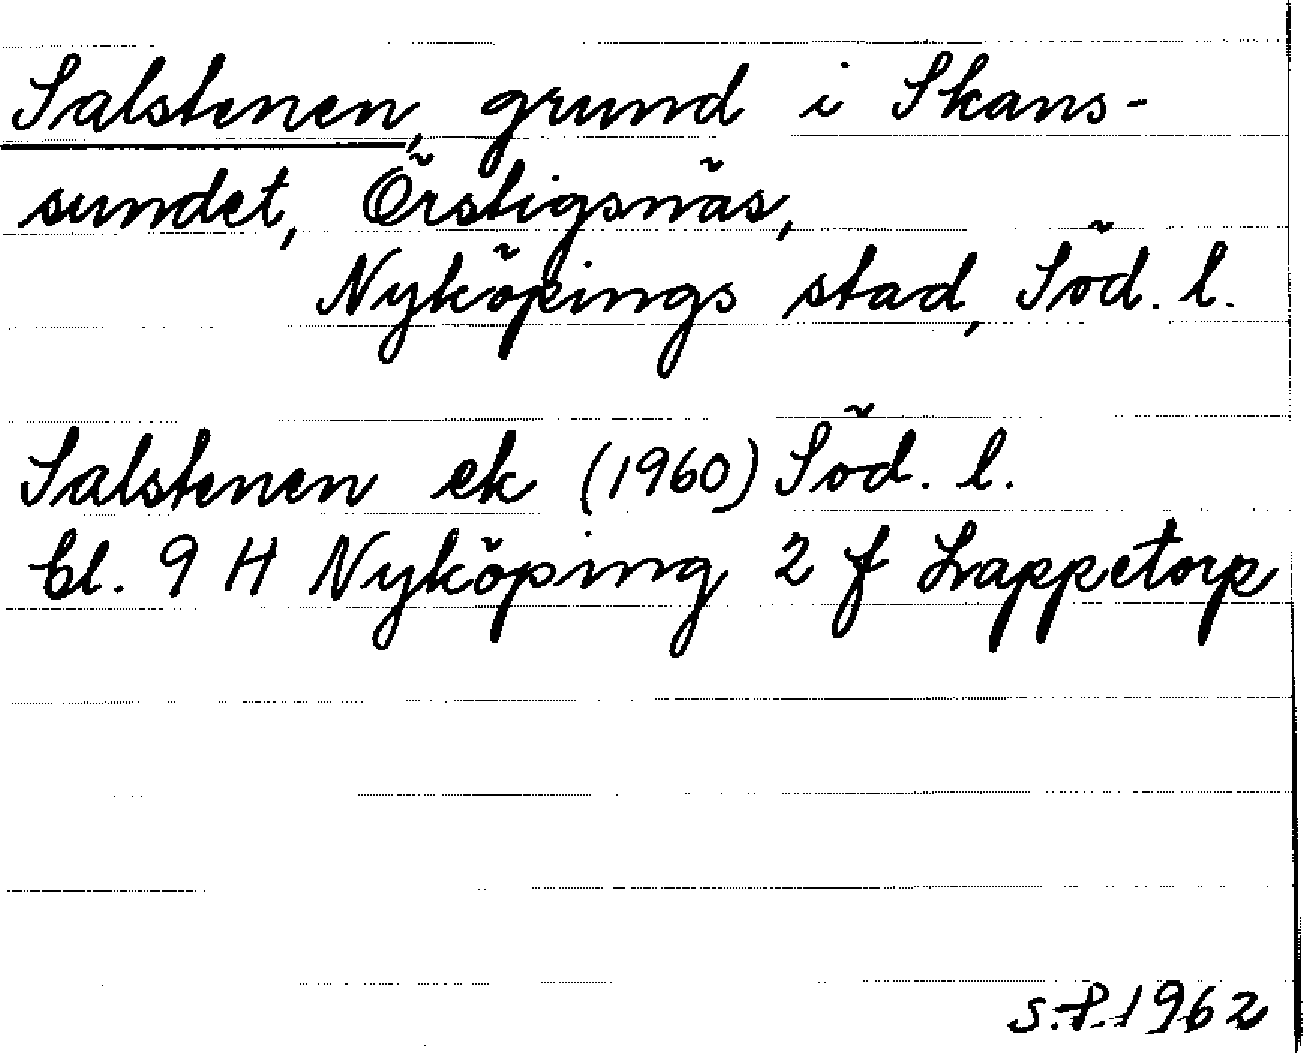 Salstenen, grund i Skans-
sundet, Örstigsnäs,
Nyköpings stad, Söd. l.
Salstenen ek (1960) Söd. l.
bl. 9 H Nyköping 2 f Lappetorp
S.P. 1962